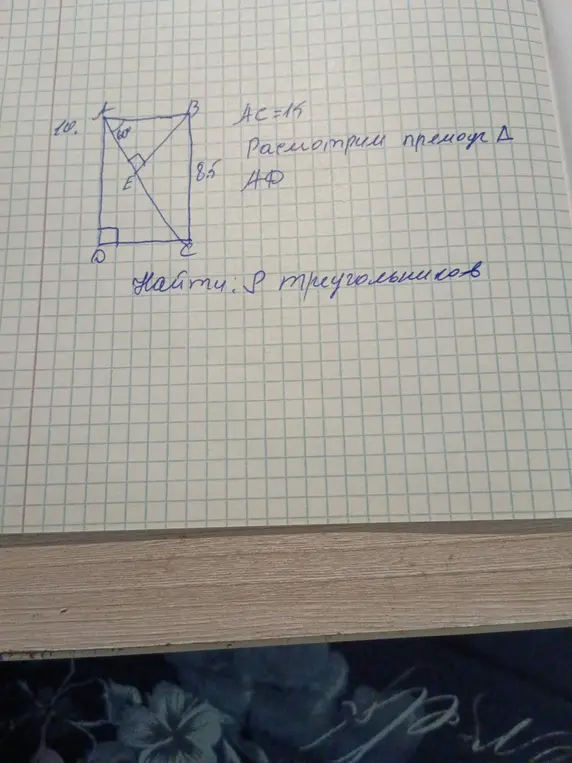 A B AC=15
10. 60°
Расмотрим прямоуг Δ
E 8,5 AD
D C
Найти: S треугольников